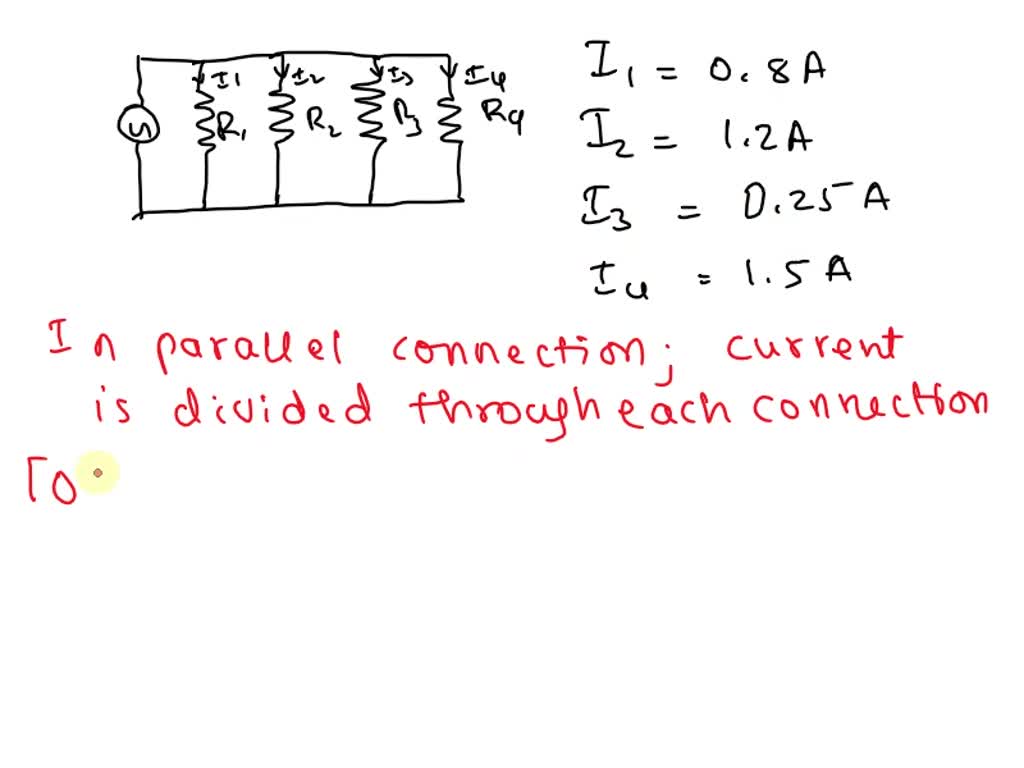 I1 I2 I3 I4
R1 R2 R3 R4
I1 = 0.8A
I2 = 1.2A
I3 = 0.25A
I4 = 1.5A
In parallel connection; current
is divided through each connection
To